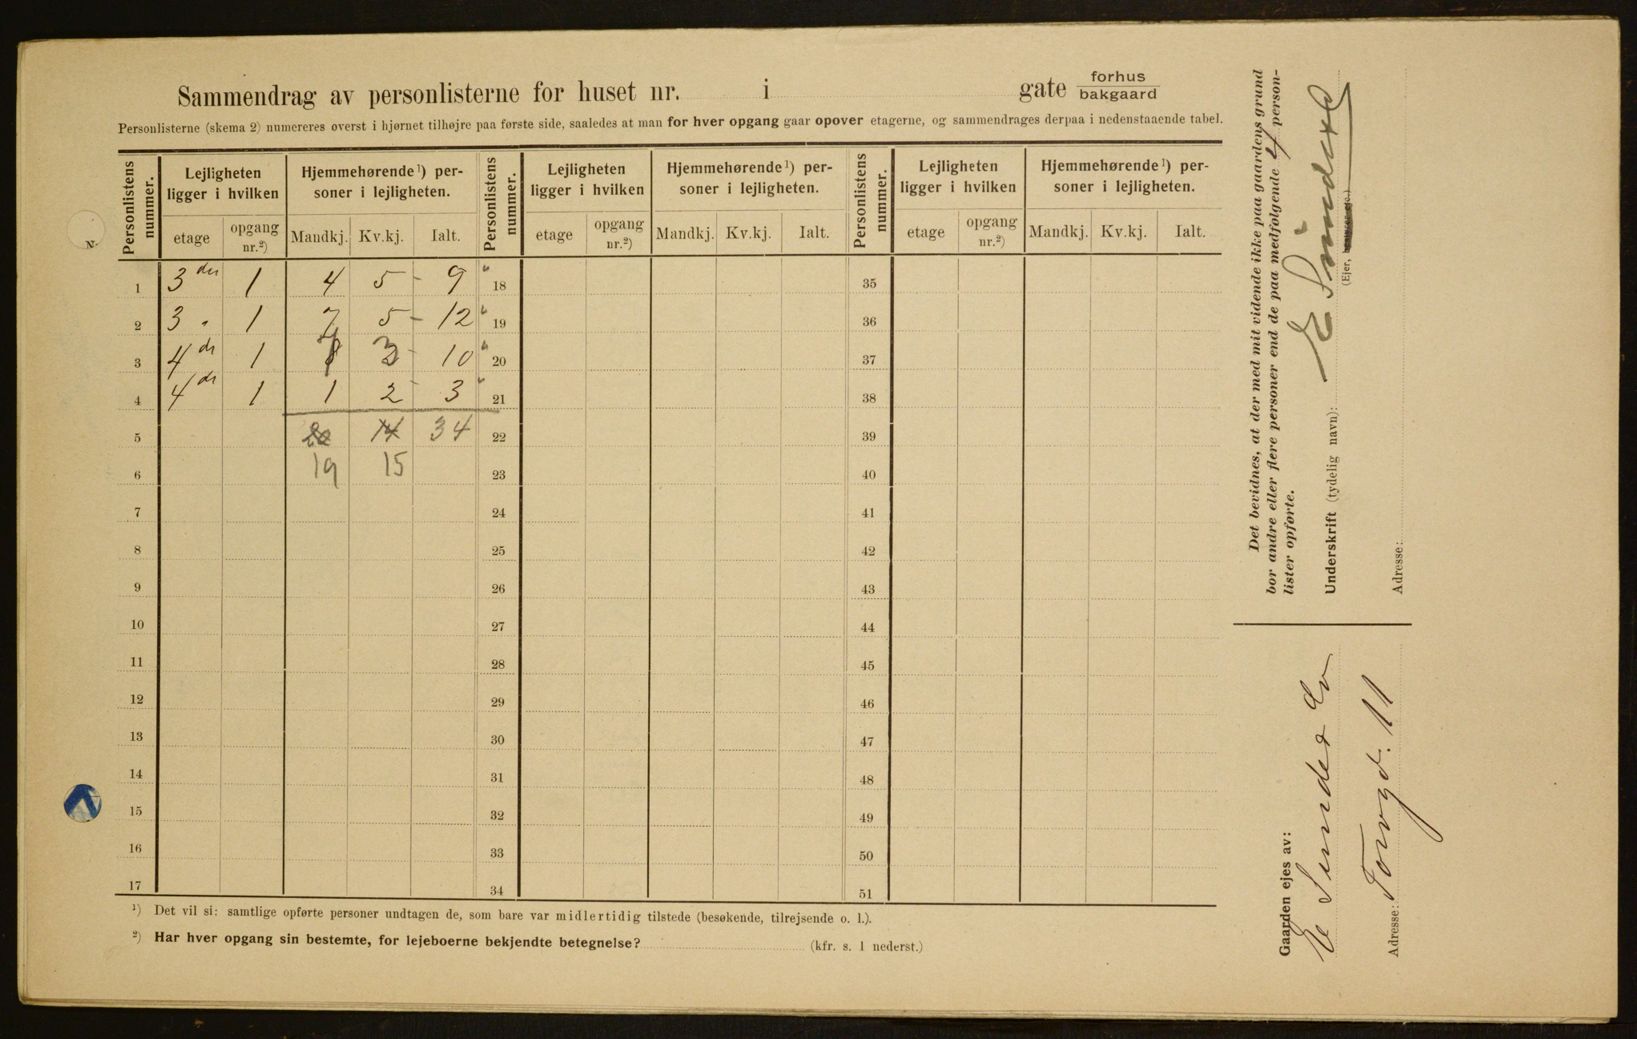 Sammendrag av personlisterne for huset nr. i gate forhus
bakgaard
Personlisterne (skema 2) numereres øverst i hjørnet tilhøjre paa første side, saaledes at man for hver opgang gaar opover etagerne, og sammendrages derpaa i nedenstaaende tabel.
Personlistens nummer. Lejligheten ligger i hvilken Hjemmehørende¹) personer i lejligheten. Personlistens nummer. Lejligheten ligger i hvilken Hjemmehørende¹) personer i lejligheten. Personlistens nummer. Lejligheten ligger i hvilken Hjemmehørende¹) personer i lejligheten.
etage opgang nr.²) Mandkj. Kv.kj. Ialt. etage opgang nr.²) Mandkj. Kv.kj. Ialt. etage opgang nr.²) Mandkj. Kv.kj. Ialt.
1 3 1 4 5 - 9 18 35
2 3 " 1 7 5 - 12 19 36
3 4 1 7 3 10 20 37
4 4 1 1 2 3 21 38
5 20 14 34 22 39
6 19 15 23 40
7 24 41
8 25 42
9 26 43
10 27 44
11 28 45
12 29 46
13 30 47
14 31 48
15 32 49
16 33 50
17 34 51
¹) Det vil si: samtlige opførte personer undtagen de, som bare var midlertidig tilstede (besøkende, tilrejsende o. l.).
²) Har hver opgang sin bestemte, for lejeboerne bekjendte betegnelse? (kfr. s. 1 nederst.)
Det bevidnes, at der med mit vidende ikke paa gaardens grund
bor andre eller flere personer end de paa medfølgende 4 person-
lister opførte.
Underskrift (tydelig navn): E
(Ejer,
Adresse:
Gaarden ejes av:
E
Adresse: Torvgt. 11